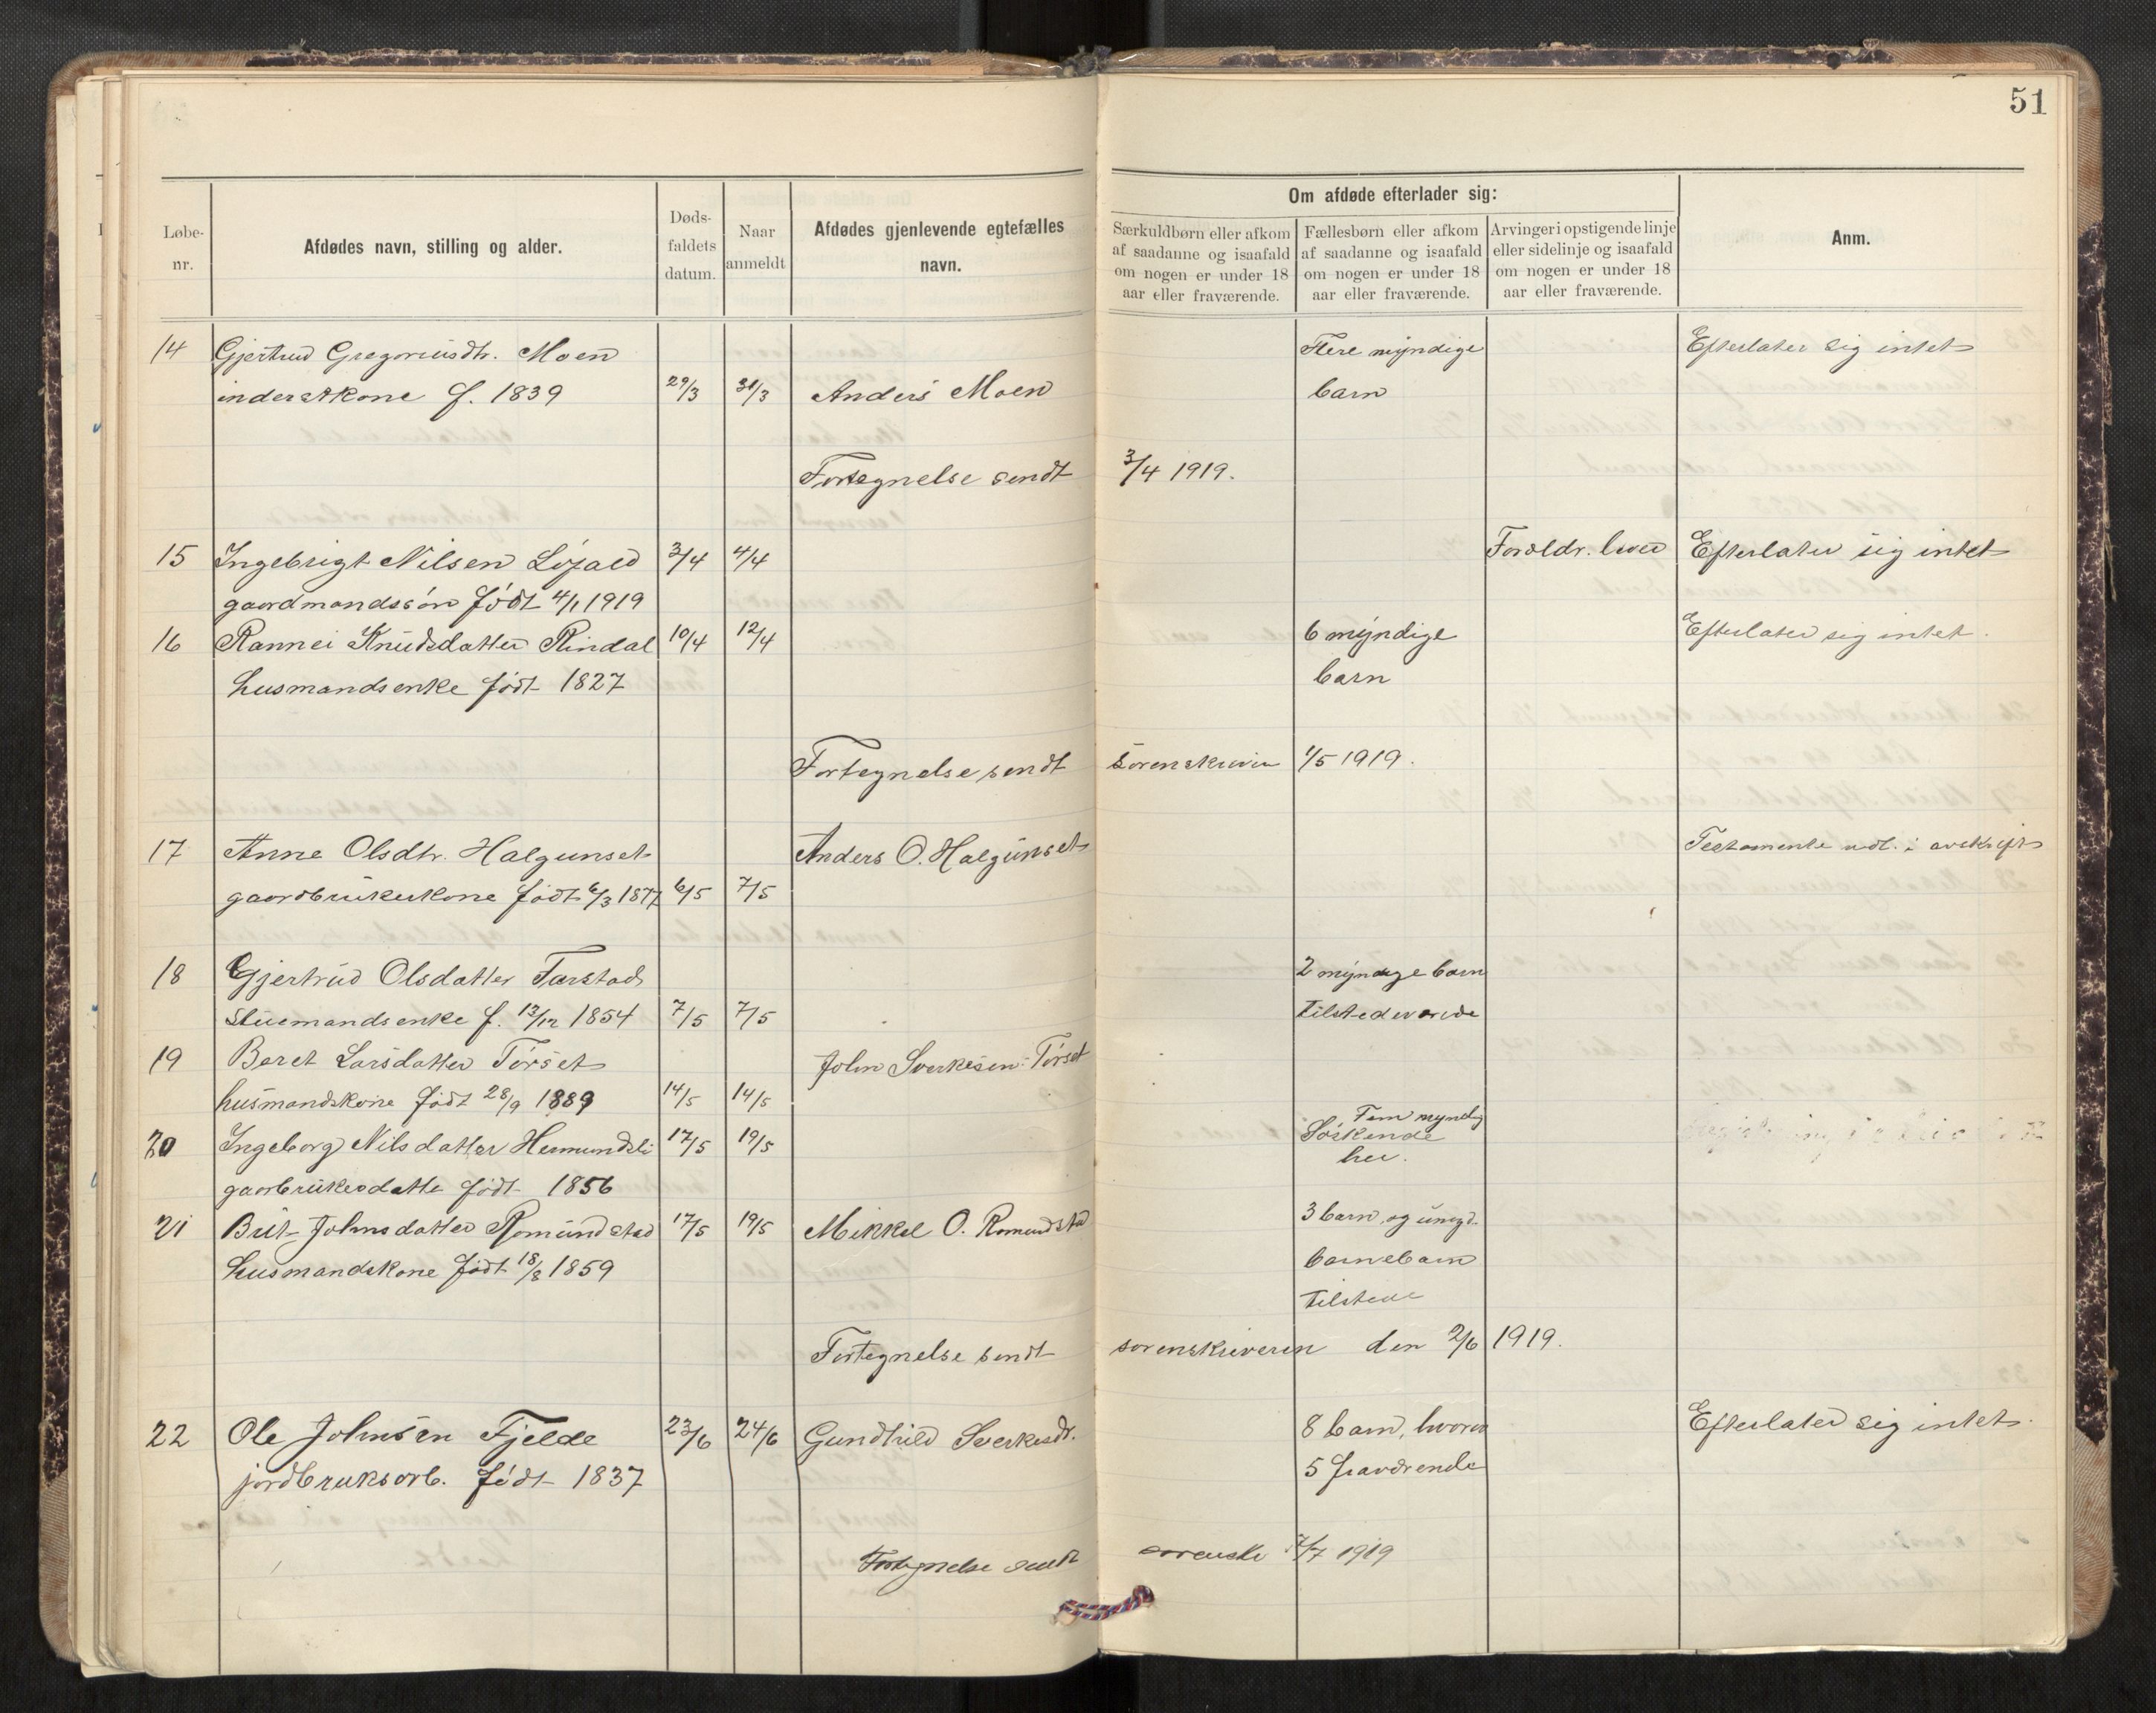 51
Løbe-nr.
Afdødes navn, stilling og alder.
Døds-faldets datum.
Naar anmeldt
Afdødes gjenlevende egtefælles navn.
Om afdøde efterlader sig:
Særkuldbørn eller afkom af saadanne og isaafald om nogen er under 18 aar eller fraværende.
Fællesbørn eller afkom af saadanne og isaafald om nogen er under 18 aar eller fraværende.
Arvinger i opstigende linje eller sidelinje og isaafald om nogen er under 18 aar eller fraværende.
Anm.
14 Gjertrud Gregoriusdtr. Moen Flere myndige Efterlater sig intet
inderstkone f. 1839 29/3 31/3 Anders Moen barn
Fortegnelse sendt 3/4 1919.
15 Ingebrigt Nilsen Løfald 3/4 4/4 Foreldr. lever Efterlater sig intet
gaardmandssøn født 4/1 1919
16 Rannei Knudsdatter Rindal 10/4 12/4 6 myndige Efterlater sig intet.
husmandsenke født 1827 barn
Fortegnelse sendt sorenskriver 1/5 1919.
17 Anne Olsdtr. Halgunset Anders O. Halgunset Testamente udl. i avskrift
gaardbrukerkone født 6/3 1877 6/5 7/5
18 Gjertrud Olsdatter Tarstad 2 myndige barn
stuemandsenke f. 13/12 1854 7/5 7/5 tilstedeværende
19 Beret Larsdatter Tørset John Sverkesen Tørset
husmandskone født 28/9 1889 14/5 14/5
20 Ingeborg Nilsdatter Hermundsli 17/5 19/5 Fem myndig Søskende
gaarbrukerdatte født 1856 her.
21 Brit Johnsdatter Romundstad 17/5 19/5 Mikkel O. Romundstad 3 barn og umyd.
husmandskone født 18/8 1859 barnebarn
tilstede
Fortegnelse sendt sorenskriveren den 2/6 1919.
22 Ole Johnsen Fjelde 23/6 24/6 Gundhild Sverkesdr. 8 barn, hvorav Efterlater sig intet.
jordbruksarb. født 1837 5 fraværende
Fortegnelse sendt sorenskr 7/7 1919